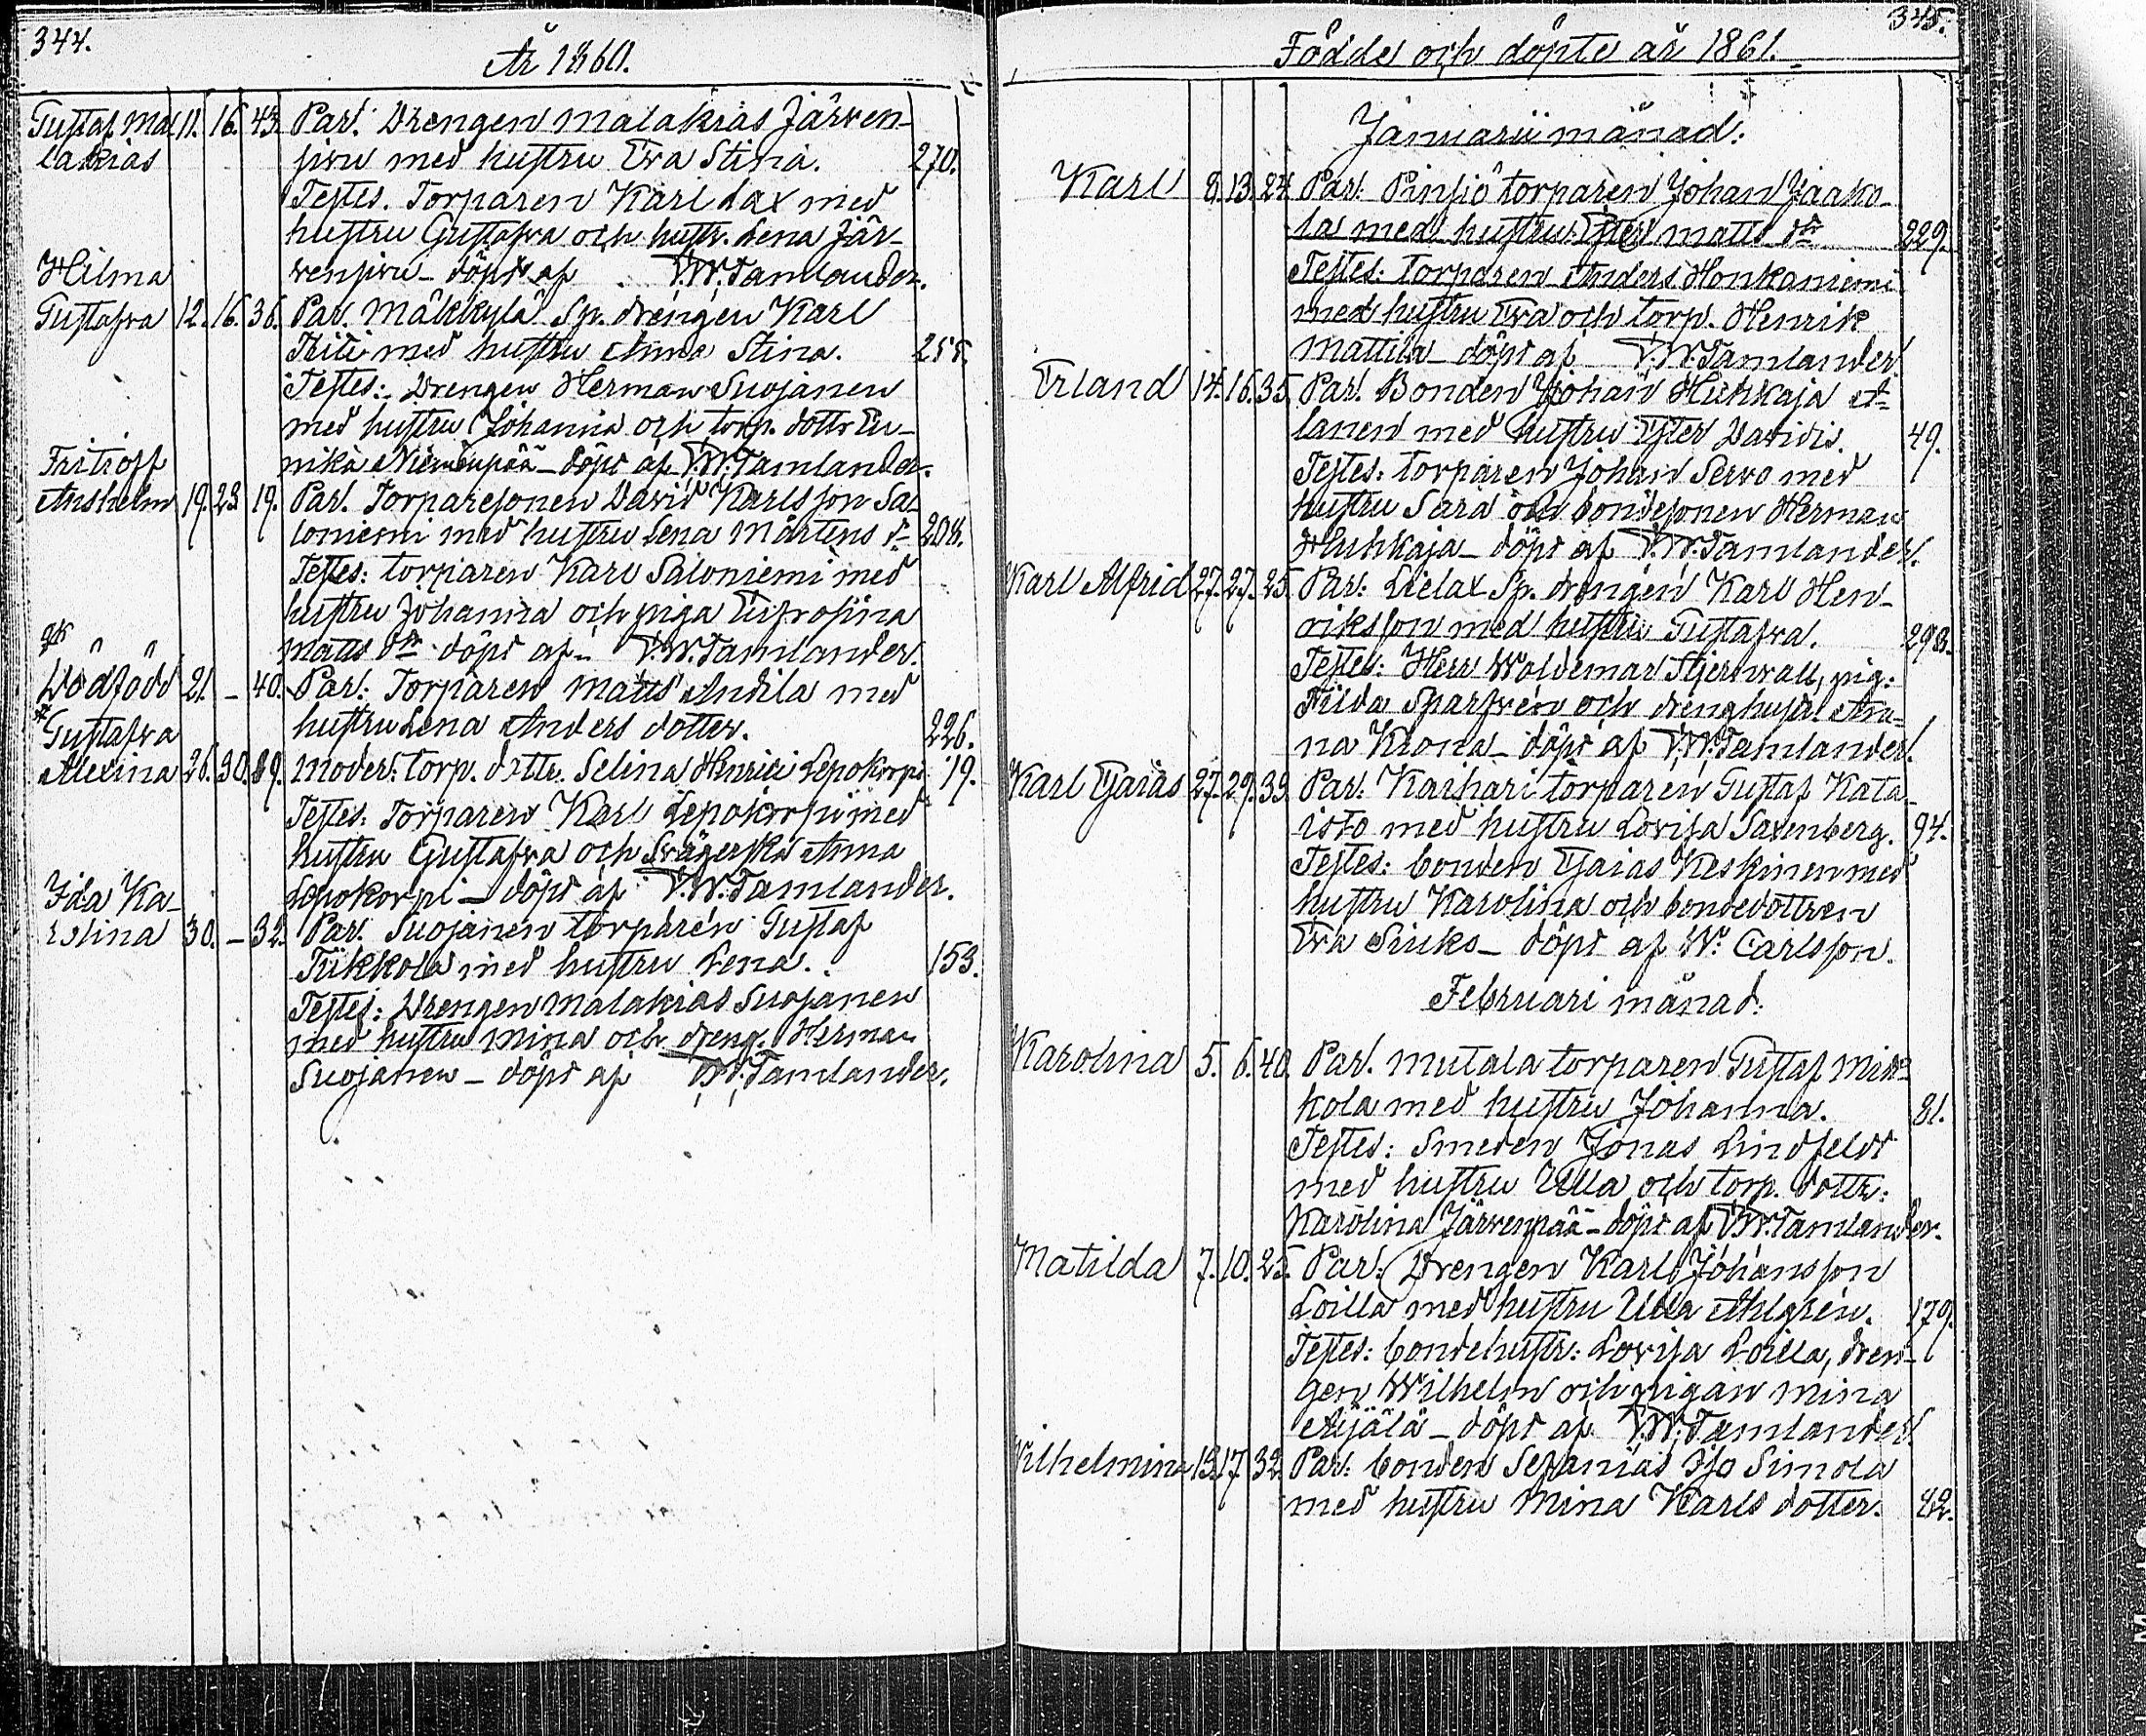 344.
År 1860.
Gustaf Ma 11. 16. 43. Par. Drengen Malakias Järven-
lakias
sivu med hustru Eva Stina. 270.
Testes. Torparen Karl Lax med
hustru Gustafva och hustr. Lena Jär-
Hilma
vensivu – döpt af V.W. Tamlander.
Gustafva 12. 16. 36. Par. Mäkkylä Sp. drengen Karl
med hustru Anna Stina. 255.
Testes: Drengen Herman Suojanen
med hustru Johanna och torp. dottr Eu-
Fritioff
nika Niemenpää – döpt af V.W. Tamlander.
Anshelm 19. 23 19. Par. Torparesonen David Karlsson Sa-
loniemi med hustru Lena Mårtens dr 208.
Testes: torparen Karl Saloniemi med
hustru Johanna och piga Eufrosina
Matts dr döpt af – V.W. Tamlander.
Dödfödd 21. – 40. Par: Torparen Matts Andila med
hustru Lena Anders dotter. 226.
Gustafva
Alexina 26. 30. 89. Moder: torp. dottr. Selina Henrici Lepokorpi 19.
Testes: Torparen Karl Lepokorpi med
hustru Gustafva och Svägerska Anna
Lepokorpi – döpt af V.W. Tamlander.
Ida Ka-
rolina 30. – 32. Par. Suojanen torparen Gustaf
Tükkola med hustru Lena. 153.
Testes: Drengen Malakias Suojanen
med hustru Mina och dreng. Herman
Suojanen – döpt af V.W. Tamlander.
345.
Födde och döpte år 1861.
Januarii månad.
Karl 8. 13. 24. Par: Pinsiö torparen Johan Jaako-
la med hustru Ester Matts dr 229.
Testes: torparen Anders Honkaniemi
med hustru Eva och torp. Henrik
Mattila – döpt af V.W. Tamlander.
Erland 14. 16. 35. Par. Bonden Johan Huhkaja A-
lanen med hustru Ester Davidis. 49.
Testes: torparen Johan Servo med
hustru Sara och bondesonen Herman
Huhkaja – döpt af V.W. Tamlander.
Karl Alfrid 27. 27. 25. Par: Lielax Sp. drengen Karl Hen-
riksson med hustru Gustafva. 293.
Testes: Herr Woldemar Stjernvall, pig.
Tilda Sparfvén och drenghustr An-
na Krona – döpt af V.W. Tamlander.
Karl Esaias 27. 29. 39. Par: Kaihari torparen Gustaf Kata-
isto med hustru Lovisa Saxenberg. 94.
Testes: bonden Esaias Keskinen med
hustru Karolina och bondedottren
Eva Siuko – döpt af W. Carlsson.
Februari månad:
Karolina 5. 6. 40. Par. Mutala torparen Gustaf Mik-
kola med hustru Johanna. 81.
Testes: Smeden Jonas Lindfeldt
med hustru Ulla och torp. dottr:
Karolina Järvenpää – döpt af V.W. Tamlander.
Matilda 7. 10. 25. Par: Drengen Karl Johansson
Loilla med hustru Ulla Ahlgrén. 179.
Testes: bondehustr: Lovisa Loilla, dren-
gen Wilhelm och pigan Mina
Äijälä – döpt af V.W. Tamlander.
Wilhelmina 13. 17. 32. Par: bonden Sefanias Iso Simola
med hustru Mina Karls dotter. 42.